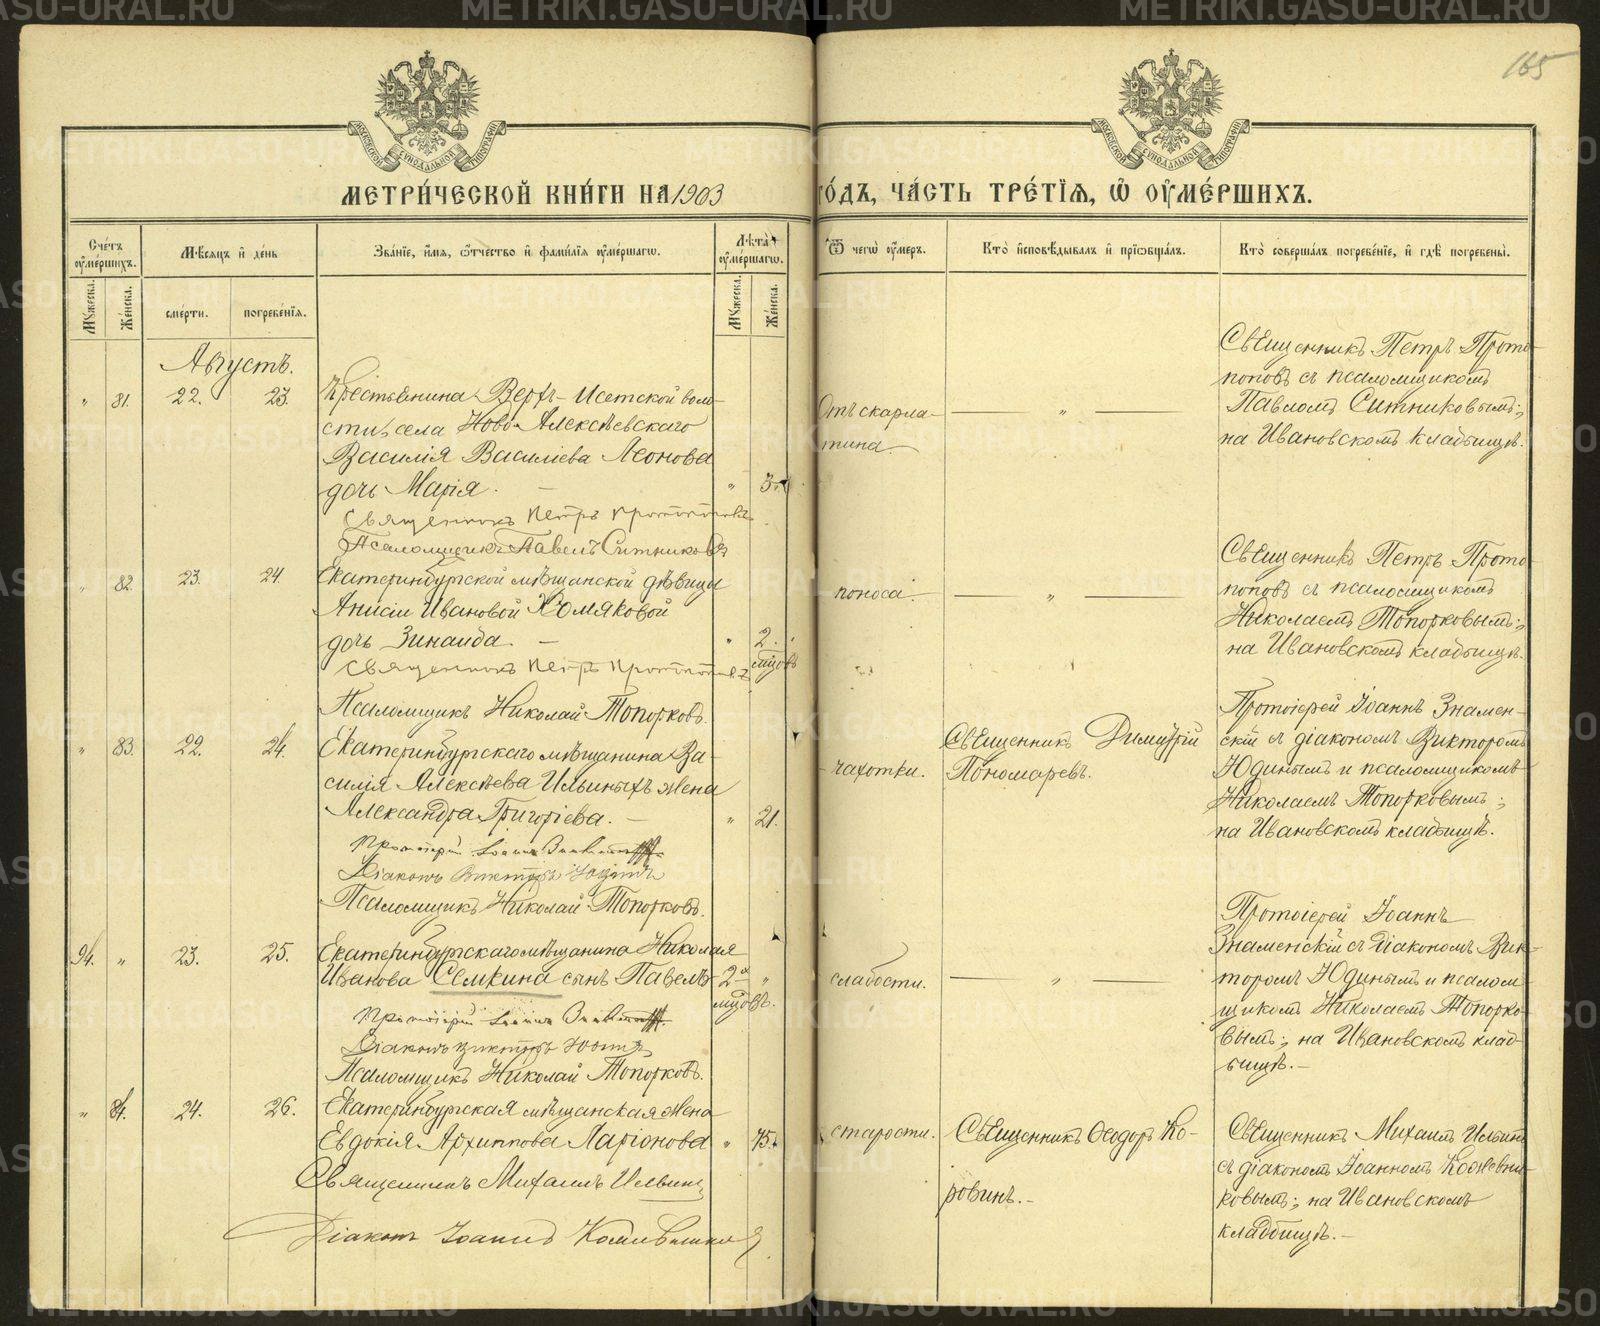 165
МОСКОВСКОЙ СѴНОДАЛЬНОЙ ТИПОГРАФІИ
МОСКОВСКОЙ СѴНОДАЛЬНОЙ ТИПОГРАФІИ
МЕТРИ́ЧЕСКОЙ КНИ́ГИ НА 1903 ГО́ДЪ, ЧА́СТЬ ТРЕ́ТІѦ, Ѡ҆ ОУ҆МЕ́РШИХЪ.
Сче́тъ оу҆ме́ршихъ.
Мѣ́сяцъ и҆ де́нь
Зва́нїе, и҆́мя, ѻ҆́тчество и҆ фами́лїя оу҆ме́ршагѡ.
Лѣ́та оу҆ме́ршагѡ.
Ѿ чегѡ̀ оу҆́меръ.
Кто̀ и҆сповѣ́дывалъ и҆ прїѡбща́лъ.
Кто̀ соверша́лъ погребе́нїе, и҆ гдѣ̀ погребены̀.
Мꙋ́жеска.
Же́нска.
сме́рти.
погребе́нїя.
Мꙋ́жеска.
Же́нска.
Августъ.
" 81. 22. 23.
Крестьянина Верхъ-Исетской воло-
сти, села Ново-Алексѣевскаго
Василія Василіева Леонова
дочь Марія. — " 3
Священникъ Петръ Протопоповъ
Псаломщикъ Павелъ Ситниковъ
Отъ скарла-
тина.
— " —
Священникъ Петръ Прото-
поповъ съ псаломщикомъ
Павломъ Ситниковымъ;
на Ивановскомъ кладбищѣ.
" 82. 23. 24.
Екатеринбургской мѣщанской дѣвицы
Анисіи Ивановой Хомяковой
дочь Зинаида. — " 2
мцовъ
Священникъ Петръ Протопоповъ
Псаломщикъ Николай Топорковъ.
поноса.
— " —
Священникъ Петръ Прото-
поповъ съ псаломщикомъ
Николаемъ Топорковымъ;
на Ивановскомъ кладбищѣ.
" 83. 22. 24.
Екатеринбургскаго мѣщанина Ва-
силія Алексѣева Ильиныхъ жена
Александра Григоріева. — " 21.
Протоіерей Іоаннъ Знаменскій
Діаконъ Викторъ Юдинъ
Псаломщикъ Николай Топорковъ.
чахотки.
Священникъ Димитрій
Пономаревъ.
Протоіерей Іоаннъ Знамен-
скій съ діакономъ Викторомъ
Юдинымъ и псаломщикомъ
Николаемъ Топорковымъ;
на Ивановскомъ кладбищѣ.
94. " 23. 25.
Екатеринбургскаго мѣщанина Николая
Иванова Семкина сынъ Павелъ 2-хъ "
мцовъ.
Протоіерей Іоаннъ Знаменскій
Діаконъ Викторъ Юдинъ
Псаломщикъ Николай Топорковъ.
слабости.
— " —
Протоіерей Іоаннъ
Знаменскій съ діакономъ Вик-
торомъ Юдинымъ и псалом-
щикомъ Николаемъ Топорко-
вымъ; на Ивановскомъ клад-
бищѣ. —
" 84. 24. 26.
Екатеринбургская мѣщанская жена
Евдокія Архиппова Ларіонова " 75.
Священникъ Михаилъ Ильинъ
Діаконъ Іоаннъ Кожевниковъ
старости.
Священникъ Ѳеодоръ Ко-
ровинъ. —
Священникъ Михаилъ Ильинъ
съ діакономъ Іоанномъ Кожевни-
ковымъ; на Ивановскомъ
кладбищѣ. —
METRIKI.GASO-URAL.RU